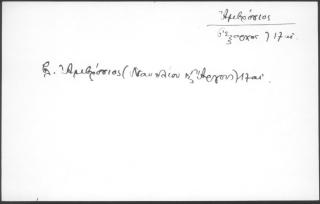 Ἀμβρόσιος
ἔξαρχος 17 αἰ.
Ἀμβρόσιος (Ναυπλίου κ Ἄργους) 17 αἰ.